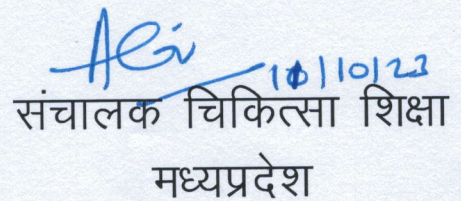 11/10/23
संचालक चिकित्सा शिक्षा
मध्यप्रदेश